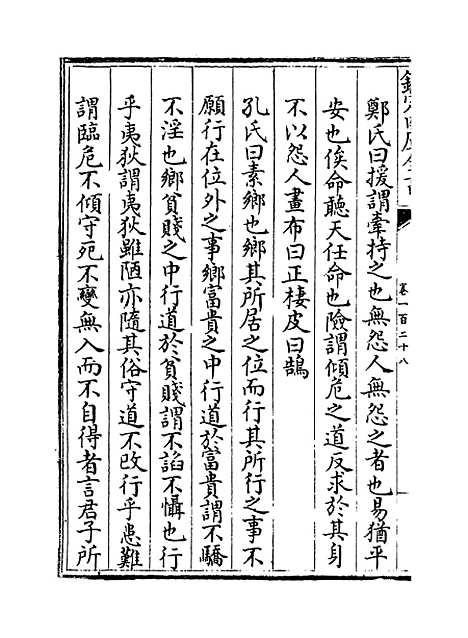 欽定四庫全書
卷一百二十八
鄭氏曰援謂牽持之也無怨人無怨之者也易猶平
安也俟命聽天任命也險謂傾危之道反求於其身
不以怨人畫布曰正棲皮曰鵠
孔氏曰素鄉也鄉其所居之位而行其所行之事不
願行在位外之事鄉富貴之中行道於富貴謂不驕
不淫也鄉貧賤之中行道於貧賤謂不諂不懾也行
乎夷狄謂夷狄雖陋亦隨其俗守道不改行乎患難
謂臨危不傾守死不變無入而不自得者言君子所